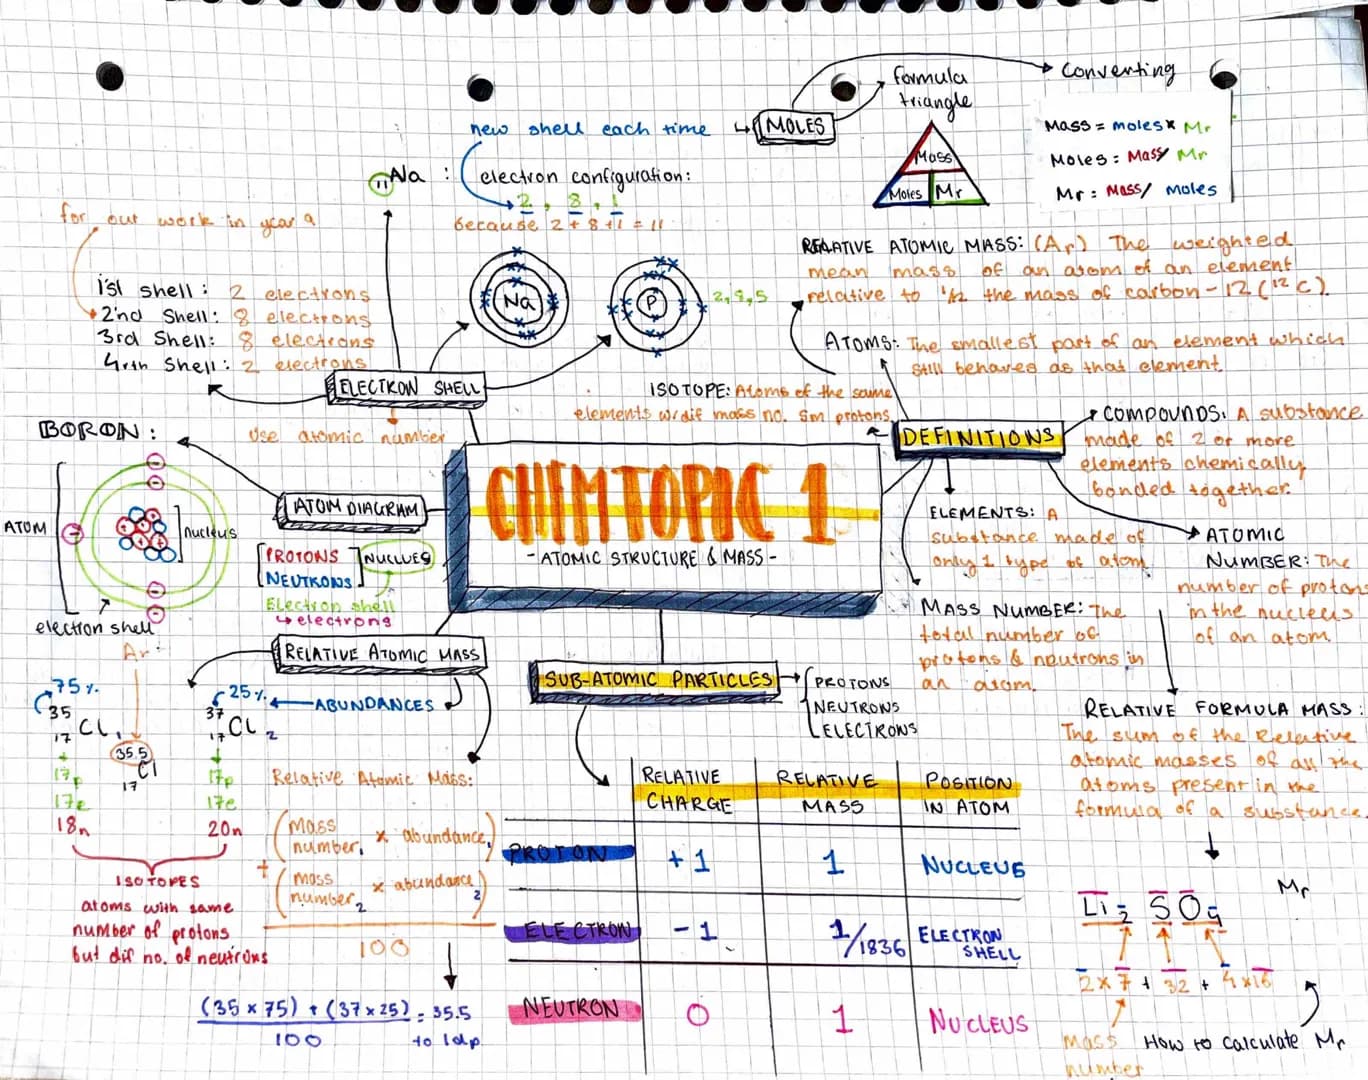 MOLES
formula
triangle
Converting
Mass
Moles
Mr
Mass = moles x Mr
Moles = Mass/Mr
Mr = Mass/ moles
new shell each time
11 Na : electron configuration:
2, 8, 1
because 2+8+1 = 11
for our work in year 9
1'st shell : 2 electrons
2'nd Shell: 8 electrons
3rd Shell: 8 electrons
4rth Shell : 2 electrons
Na
P
2,8,5
ELECTRON SHELL
use atomic number
RELATIVE ATOMIC MASS: (Ar) The weighted
mean mass of an atom of an element
relative to 1/12 the mass of carbon-12 (12C).
ATOMS: The smallest part of an element which
still behaves as that element.
ISOTOPE: Atoms of the same
elements w/dif mass no. Sm protons
DEFINITIONS
COMPOUNDS: A substance
made of 2 or more
elements chemically
bonded together.
ELEMENTS: A
substance made of
only 1 type of atom
ATOMIC
NUMBER: The
number of proton
in the nucleus
of an atom.
MASS NUMBER: The
total number of
protons & neutrons in
an atom.
RELATIVE FORMULA MASS:
The sum of the Relative
atomic masses of all the
atoms present in the
formula of a substance.
Mr
Li2 SO4
2x7 + 32 + 4x16
Mass
number
How to calculate Mr
CHEMTOPIC 1
- ATOMIC STRUCTURE & MASS -
BORON :
ATOM DIAGRAM
ATOM
Nucleus
electron shell
PROTONS
NEUTRONS
NUCLUES
Electron shell
↳ electrons
RELATIVE ATOMIC MASS
Ar:
75%
35
17 Cl 1
17p
17e
18n
35.5
17 Cl
25%
ABUNDANCES
37
17 Cl 2
17p
17e
20n
ISOTOPES
atoms with same
number of protons
but dif no. of neutrons
Relative Atomic Mass:
(mass number1 x abundance1)
+
(mass number2 x abundance2)
100
(35 x 75) + (37 x 25) = 35.5
100
to 1dp
SUB-ATOMIC PARTICLES
PROTONS
NEUTRONS
ELECTRONS
RELATIVE CHARGE
RELATIVE MASS
POSITION IN ATOM
PROTON +1 1 NUCLEUS
ELECTRON -1 1/1836 ELECTRON SHELL
NEUTRON 0 1 NUCLEUS